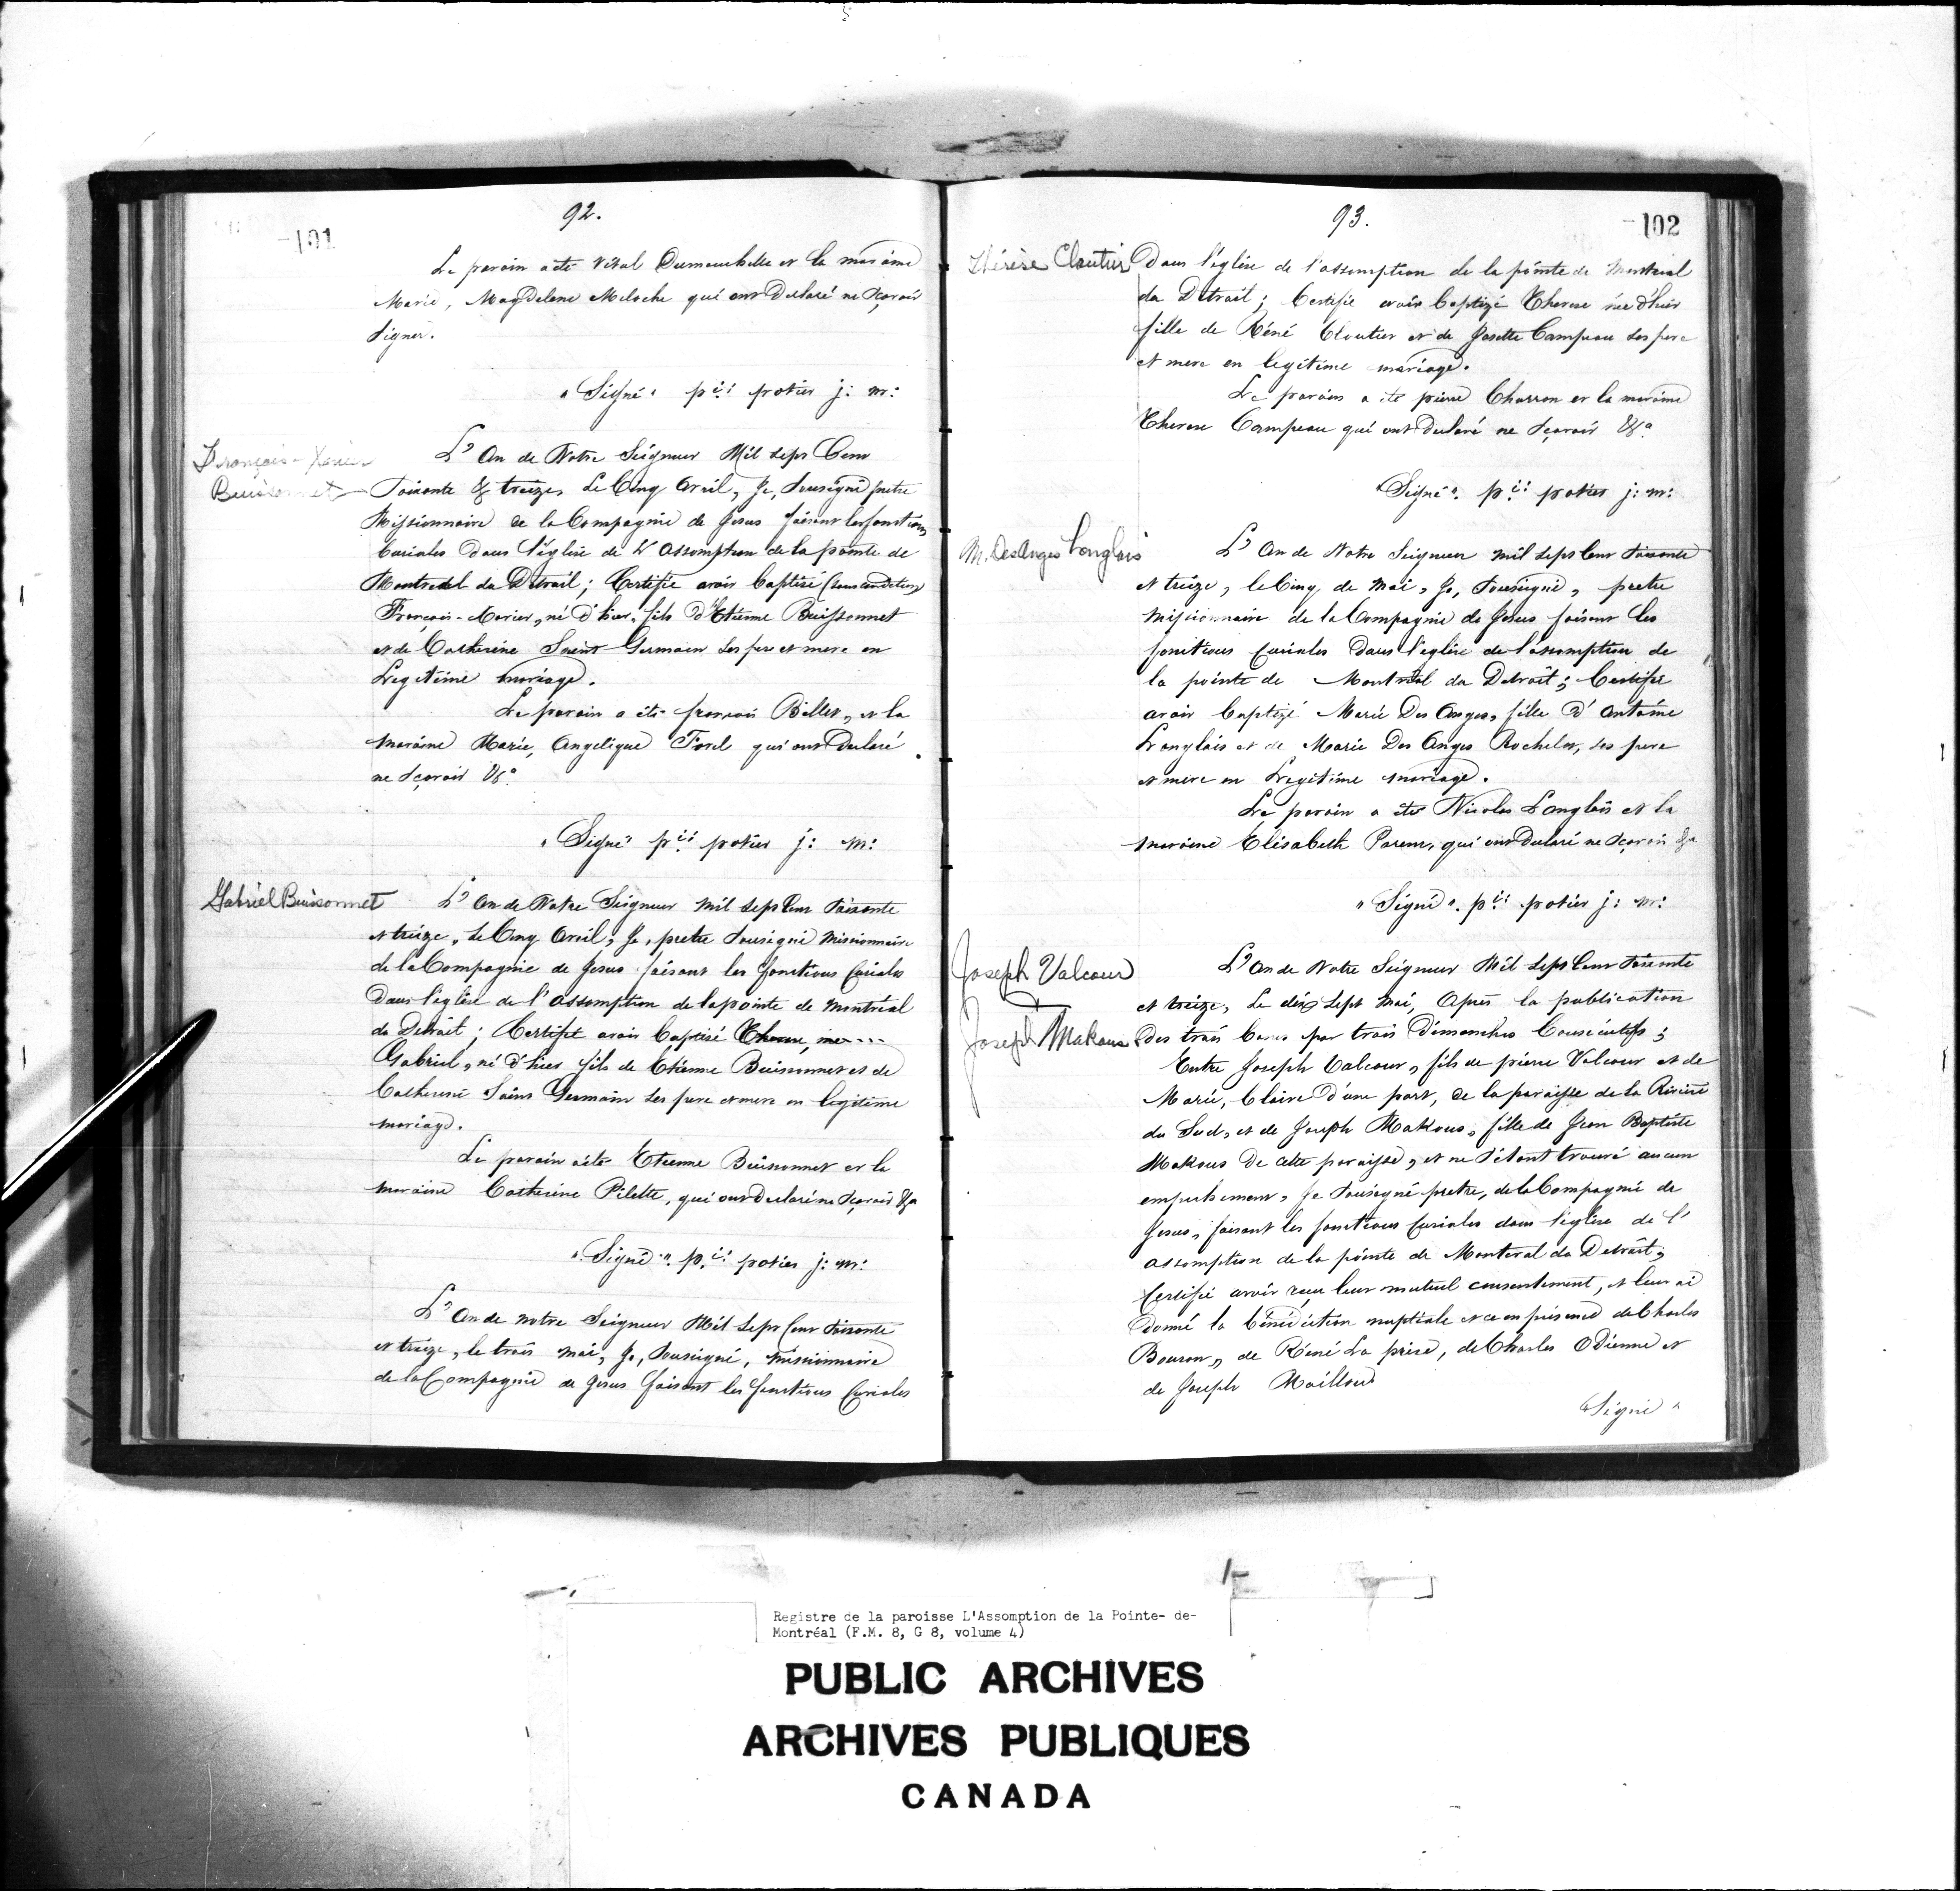 92.
101
Le parain a été vital Dumouchelle et la maraine
Marie, Magdelene Meloche qui ont Declaré ne sçavoir
signer.
"Signé" pre: potier j: m:
François-Xavier
Buissonnet
L'An de Notre Seigneur Mil sept Cent
soixante & treize, Le Cinq avril, Je, soussigné pretre
Missionnaire de la Compagnie de Jesus faisant les fonctions
Curiales dans l'église de L'assomption de la pointe de
Montreal du Détroit; Certifie avoir baptisé (sous condition)
François-Xavier, né d'hier, fils d'Etienne Buissonnet
et de Catherine Saint Germain ses pere et mere en
Legitime mariage.
Le parain a été françois Billet, et la
maraine Marie, Angelique Forel qui ont Declaré
ne sçavoir &a
"Signé" pre: potier j: m:
Gabriel Buissonnet
L'an de Notre Seigneur mil sept Cent soixante
et treize, Le Cinq avril, Je, pretre soussigné missionnaire
de la Compagnie de Jesus faisant les fonctions Curiales
Dans l'église de l'assomption de la pointe de montréal
du Detroit; Certifie avoir baptisé Therese, née...
Gabriel, né d'hier fils de Etienne Buissonnet et de
Catherine Saint Germain ses pere et mere en legitime
mariage.
Le parain a été Etienne Buissonnet et la
maraine Catherine Pilette, qui ont declaré ne sçavoir &a
"Signé". pre: potier j: m:
L'An de notre Seigneur Mil sept Cent soixante
et treize, le trois mai, Je, soussigné, missionnaire
de la Compagnie de Jesus faisant les fonctions Curiales
93.
102
Thérèse Cloutier
Dans l'église de l'assomption de la pointe de Montreal
du Détroit; Certifie avoir baptizé Therese née d'hier
fille de Réné Cloutier et de Josette Campeau ses pere
et mere en legitime mariage.
Le parain a été pierre Charron et la maraine
Therese Campeau qui ont declaré ne sçavoir &a
"Signé". pre: potier j: m:
M. Des Anges Langlois
L'An de Notre Seigneur mil sept Cent soixante
et treize, le Cinq de Mai, Je, soussigné, pretre
missionnaire de la Compagnie de Jesus faisant les
fonctions Curiales Dans l'eglise de l'assomption de
la pointe de Montréal du Detroit; Certifie
avoir baptizé Marie Des Anges, fille d'antoine
Langlois et de Marie Des Anges Rocheleu, ses pere
et mere en Legitime mariage.
Le parain a été Nicolas Langlois et la
maraine Elisabeth Parent, qui ont declaré ne sçavoir &a
"Signé". pre: potier j: m:
Joseph Valcour
&
Joseph Makous
L'An de Notre Seigneur Mil sept Cent soixante
et treize, Le dix sept mai, Après la publication
Des trois bans par trois Dimanches Consécutifs;
Entre Joseph Valcour, fils de pierre Valcour et de
Marie, Claire d'une part, de la paroisse de la Riviere
du Sud, et de Joseph Makous, fille de Jean Baptiste
Makous de cette paroisse, et ne s'étant trouvé aucun
empechement, Je soussigné pretre, de la Compagnie de
Jesus, faisant les fonctions Curiales dans l'église de l'
assomption de la pointe de Monteral du Detroit;
Certifie avoir reçu leur mutuel consentement, et leur ai
donné la bénédiction nuptiale et ce en présence de Charles
Bouron, de Réné La prise, de Charles Odienne et
de Joseph Mailloux
"Signé"
Registre de la paroisse L'Assomption de la Pointe- de-
Montréal (F.M. 8, G 8, volume 4)
PUBLIC ARCHIVES
ARCHIVES PUBLIQUES
CANADA